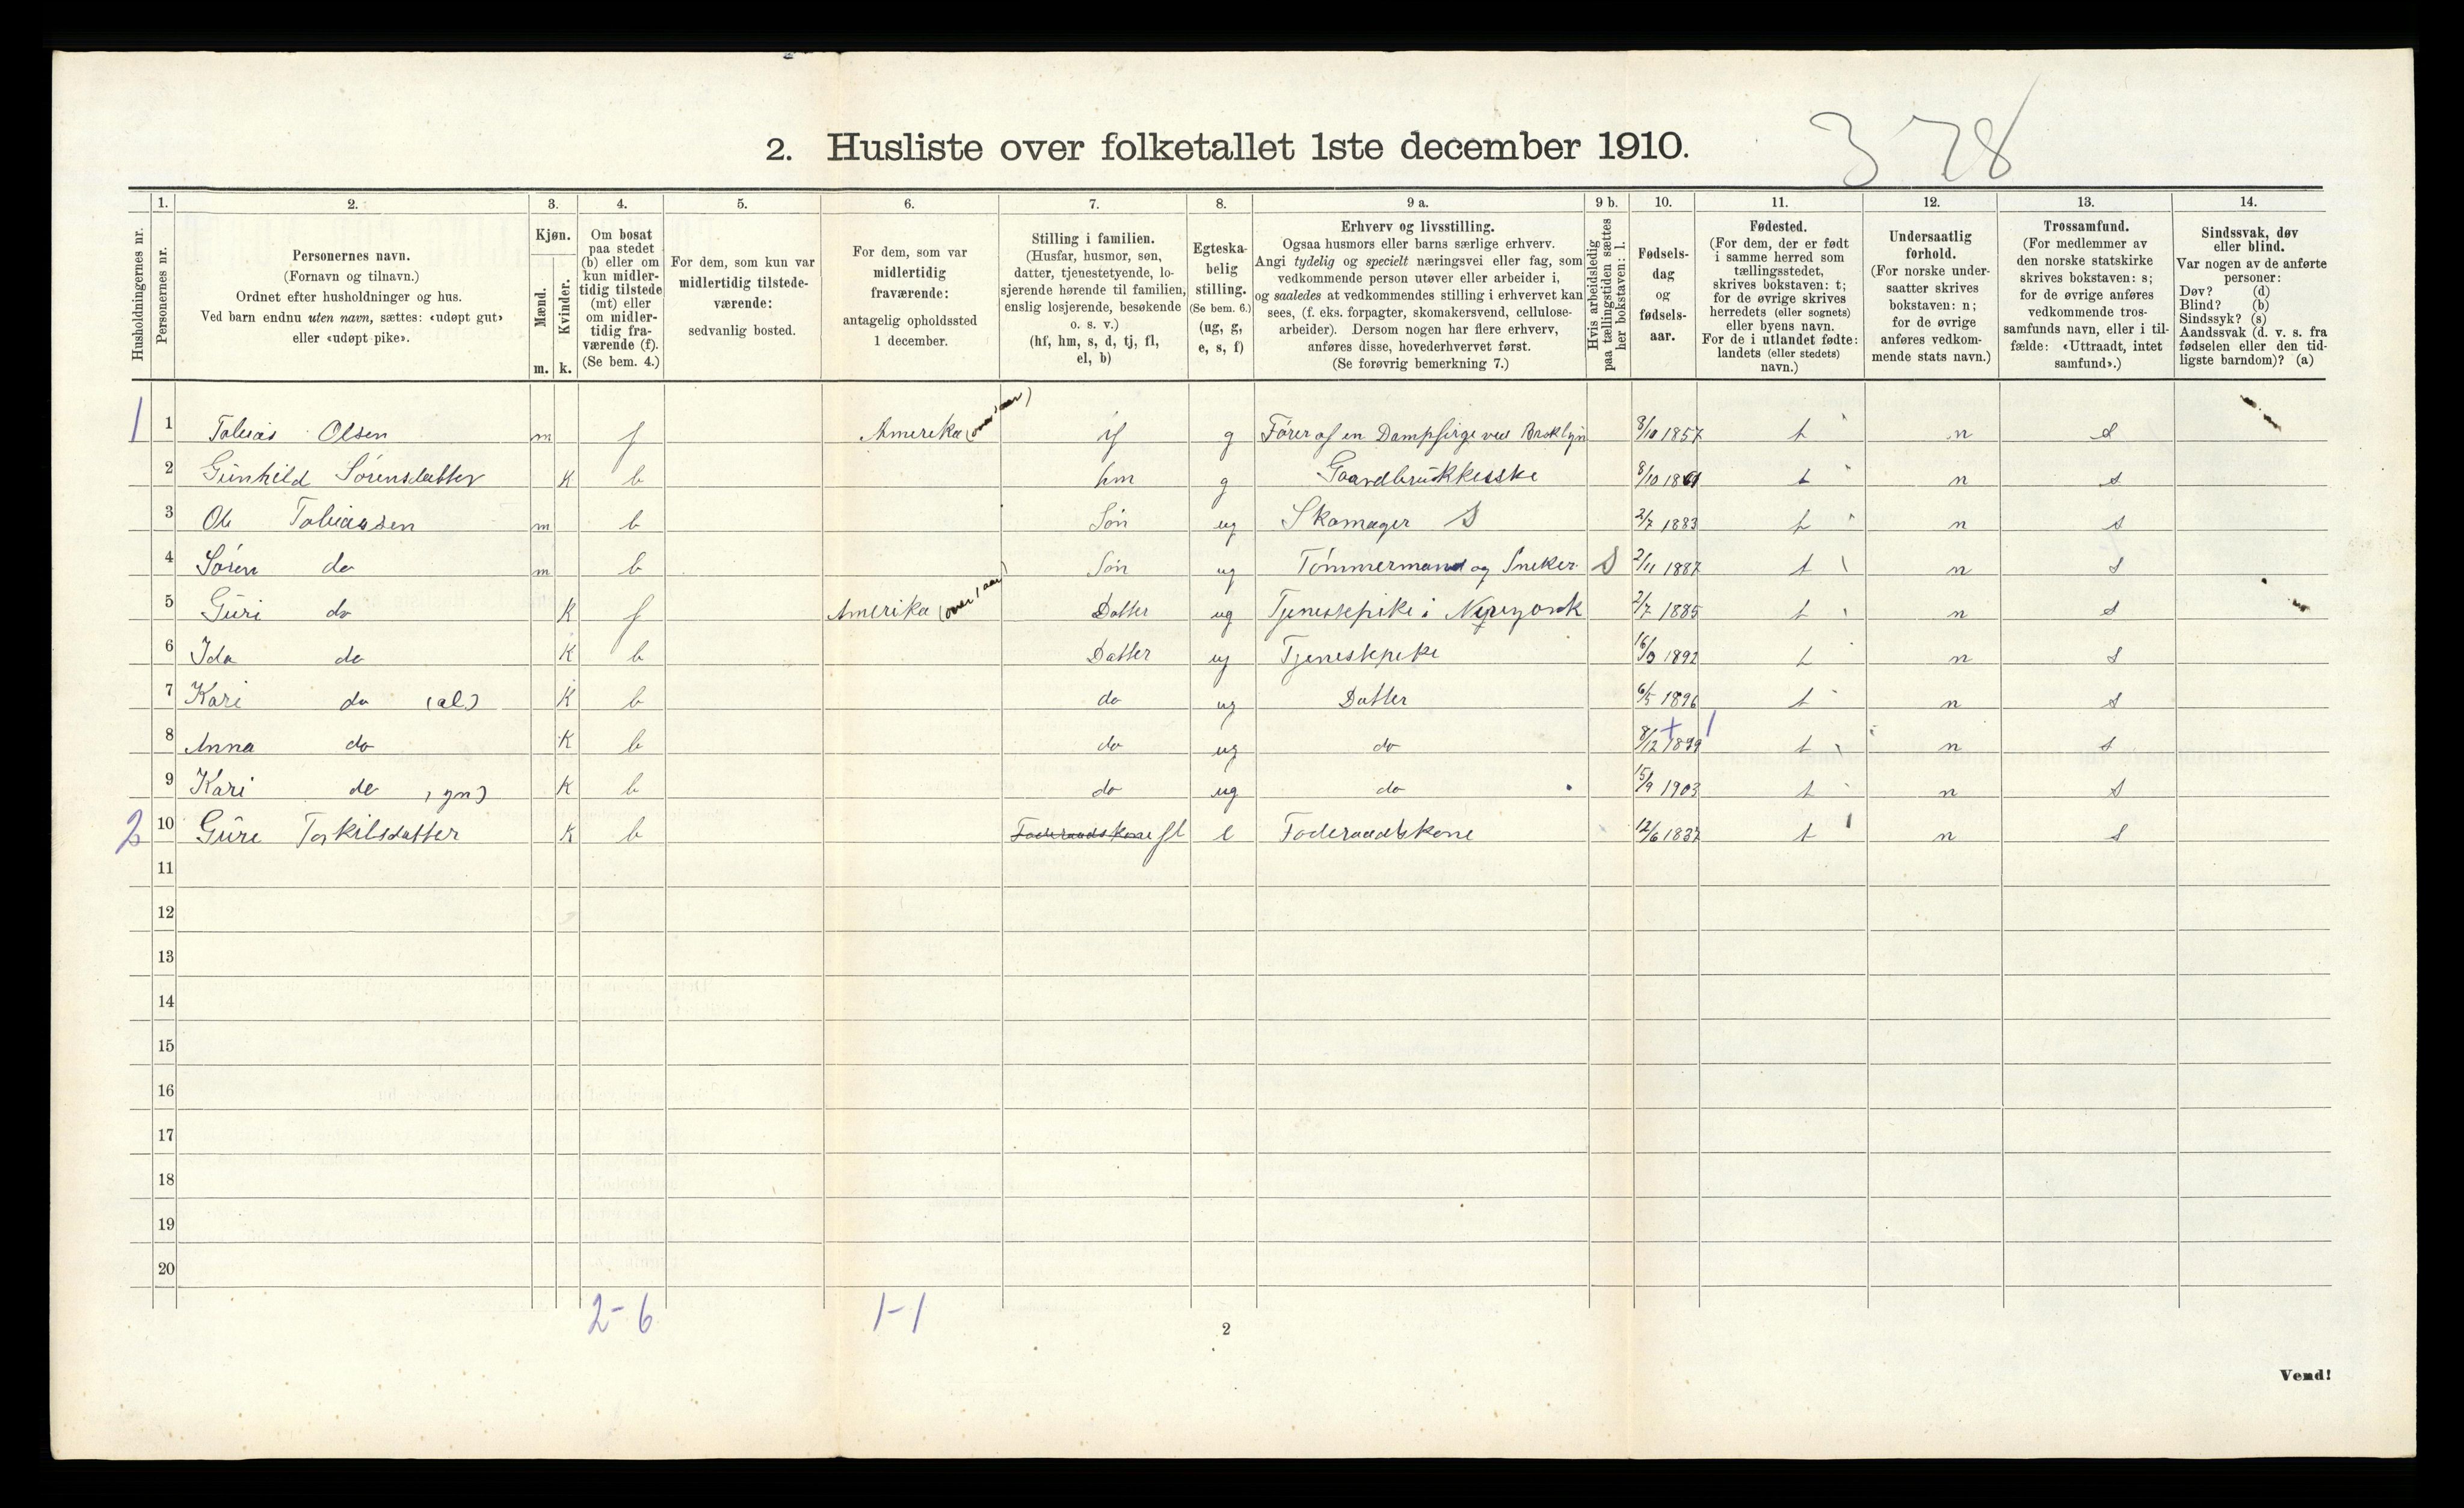 378
2. Husliste over folketallet 1ste december 1910.
Husholdningernes nr.
1. Personernes nr.
2. Personernes navn. (Fornavn og tilnavn.) Ordnet efter husholdninger og hus. Ved barn endnu uten navn, sættes: «udøpt gut» eller «udøpt pike».
3. Kjøn. Mænd. m. Kvinder. k.
4. Om bosat paa stedet (b) eller om kun midlertidig tilstede (mt) eller om midlertidig fraværende (f). (Se bem. 4.)
5. For dem, som kun var midlertidig tilstedeværende: sedvanlig bosted.
6. For dem, som var midlertidig fraværende: antagelig opholdssted 1 december.
7. Stilling i familien. (Husfar, husmor, søn, datter, tjenestetyende, losjerende hørende til familien, enslig losjerende, besøkende o. s. v.) (hf, hm, s, d, tj, fl, el, b)
8. Egteskabelig stilling. (Se bem. 6.) (ug, g, e, s, f)
9 a. Erhverv og livsstilling. Ogsaa husmors eller barns særlige erhverv. Angi tydelig og specielt næringsvei eller fag, som vedkommende person utøver eller arbeider i, og saaledes at vedkommendes stilling i erhvervet kan sees, (f. eks. forpagter, skomakersvend, cellulosearbeider). Dersom nogen har flere erhverv, anføres disse, hovederhvervet først. (Se forøvrig bemerkning 7.)
9 b. Hvis arbeidsledig paa tællingstiden sættes her bokstaven: l.
10. Fødselsdag og fødselsaar.
11. Fødested. (For dem, der er født i samme herred som tællingsstedet, skrives bokstaven: t; for de øvrige skrives herredets (eller sognets) eller byens navn. For de i utlandet fødte: landets (eller stedets) navn.)
12. Undersaatlig forhold. (For norske undersaatter skrives bokstaven: n; for de øvrige anføres vedkommende stats navn.)
13. Trossamfund. (For medlemmer av den norske statskirke skrives bokstaven: s; for de øvrige anføres vedkommende trossamfunds navn, eller i tilfælde: «Uttraadt, intet samfund».)
14. Sindssvak, døv eller blind. Var nogen av de anførte personer: Døv? (d) Blind? (b) Sindssyk? (s) Aandssvak (d. v. s. fra fødselen eller den tidligste barndom)? (a)
1 1 Tobias Olsen m f Amerika (over 1 aar) hf g Fører af en Dampfirge ved Broklyn 8/10 1857 t n s
2 Gunhild Sørensdatter K b hm g Gaardbrukkeske 8/10 1861 t n s
3 Ole Tobiassen m b Søn ug Skomager S 2/7 1883 t n s
4 Søren do m b Søn ug Tømmermand og Sneker S 2/11 1887 t n s
5 Guri do K f Amerika (over 1 aar) Datter ug Tjenestepike i 2/7 1885 t n s
6 Ida do K b Datter ug Tjenestepike 16/9 1892 t n s
7 Kari do (æl) K b do ug Datter 6/5 1896 t n s
8 Anna do K b do ug do 8/12 1899 t n s
9 Kari do (yn) K b do ug do 15/9 1903 t n s
2 10 Guri Torkilsdatter K b Foderaadskone fl e Foderaadskone 12/6 1837 t n s
11
12
13
14
15
16
17
18
19
20
2-6 1-1
2
Vend!